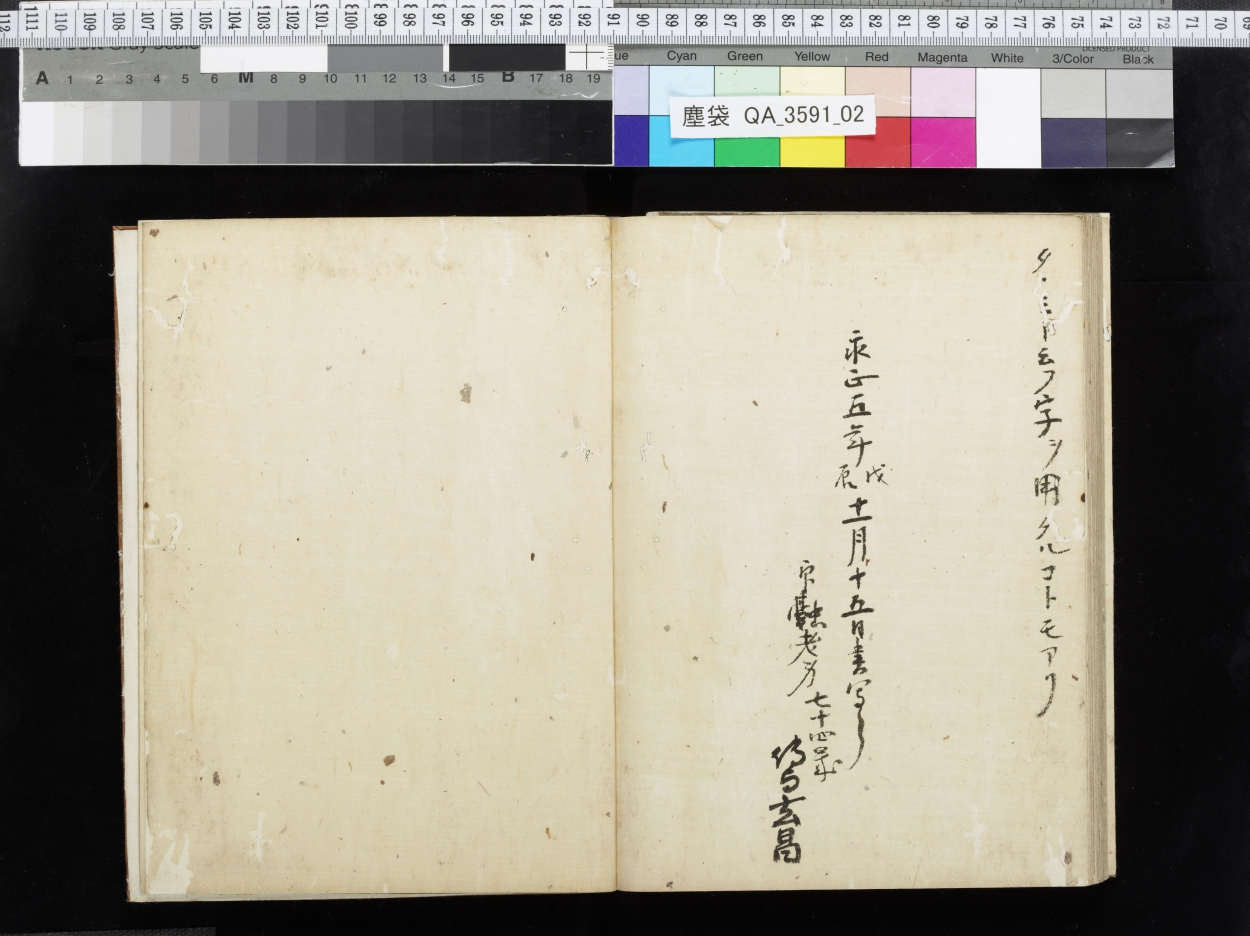 112 111 110 109 108 107 106 105 104 103 102 101 100 99 98 97 96 95 94 93 92 91 90 89 88 87 86 85 84 83 82 81 80 79 78 77 76 75 74 73 72 71 70 69
LICENSED PRODUCT
A 1 2 3 4 5 6 M 8 9 10 11 12 13 14 15 B 17 18 19
Cyan Green Yellow Red Magenta White 3/Color Black
塵袋 QA_3591_02
云フ字ヲ用タルコトモアリ
永正五年戊辰十一月十五日書写之
印融老筆七十四歳
傳与玄昌